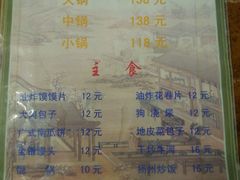 大锅 158 元
中锅 138 元
小锅 118 元
主食
油炸馍馍片 12 元 油炸花卷片 12 元
大肉包子 12 元 狗浇尿 12 元
广式南瓜饼 12 元 地皮菜包子 12 元
金银馒头 12 元 干炒牛河 16 元
锅 10 元 扬州炒饭 16 元